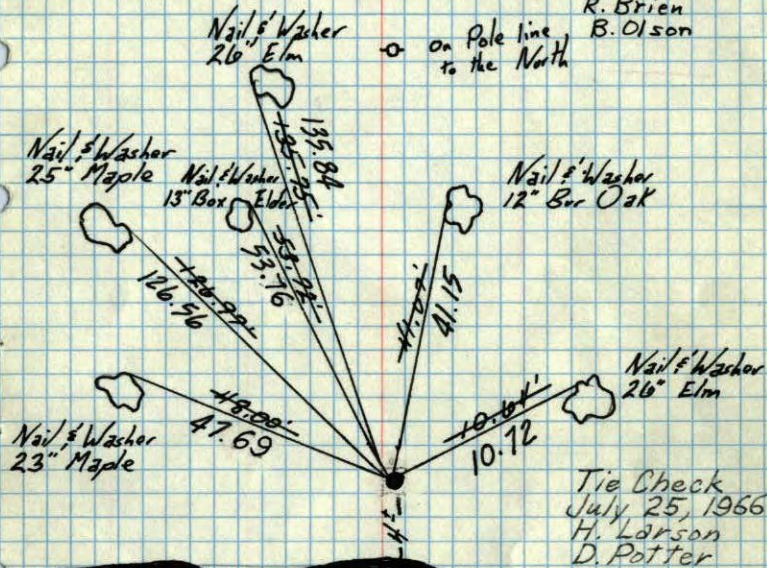 R. Brien
B. Olson
Nail & Washer
26" Elm
on Pole line
to the North
135.84
Nail & Washer
25" Maple
Nail & Washer
13" Box Elder
Nail & Washer
12" Bur Oak
53.76
126.56
41.15
Nail & Washer
26" Elm
48.00'
47.69
10.64'
10.72
Nail & Washer
23" Maple
Tie Check
July 25, 1966
H. Larson
D. Potter